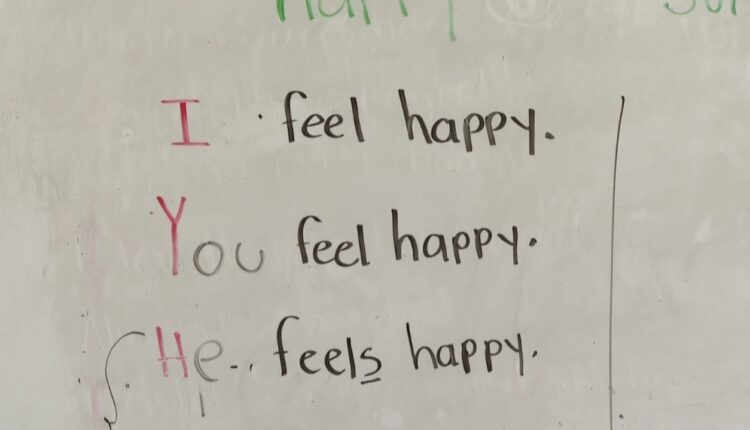 I feel happy.
You feel happy.
He feels happy.